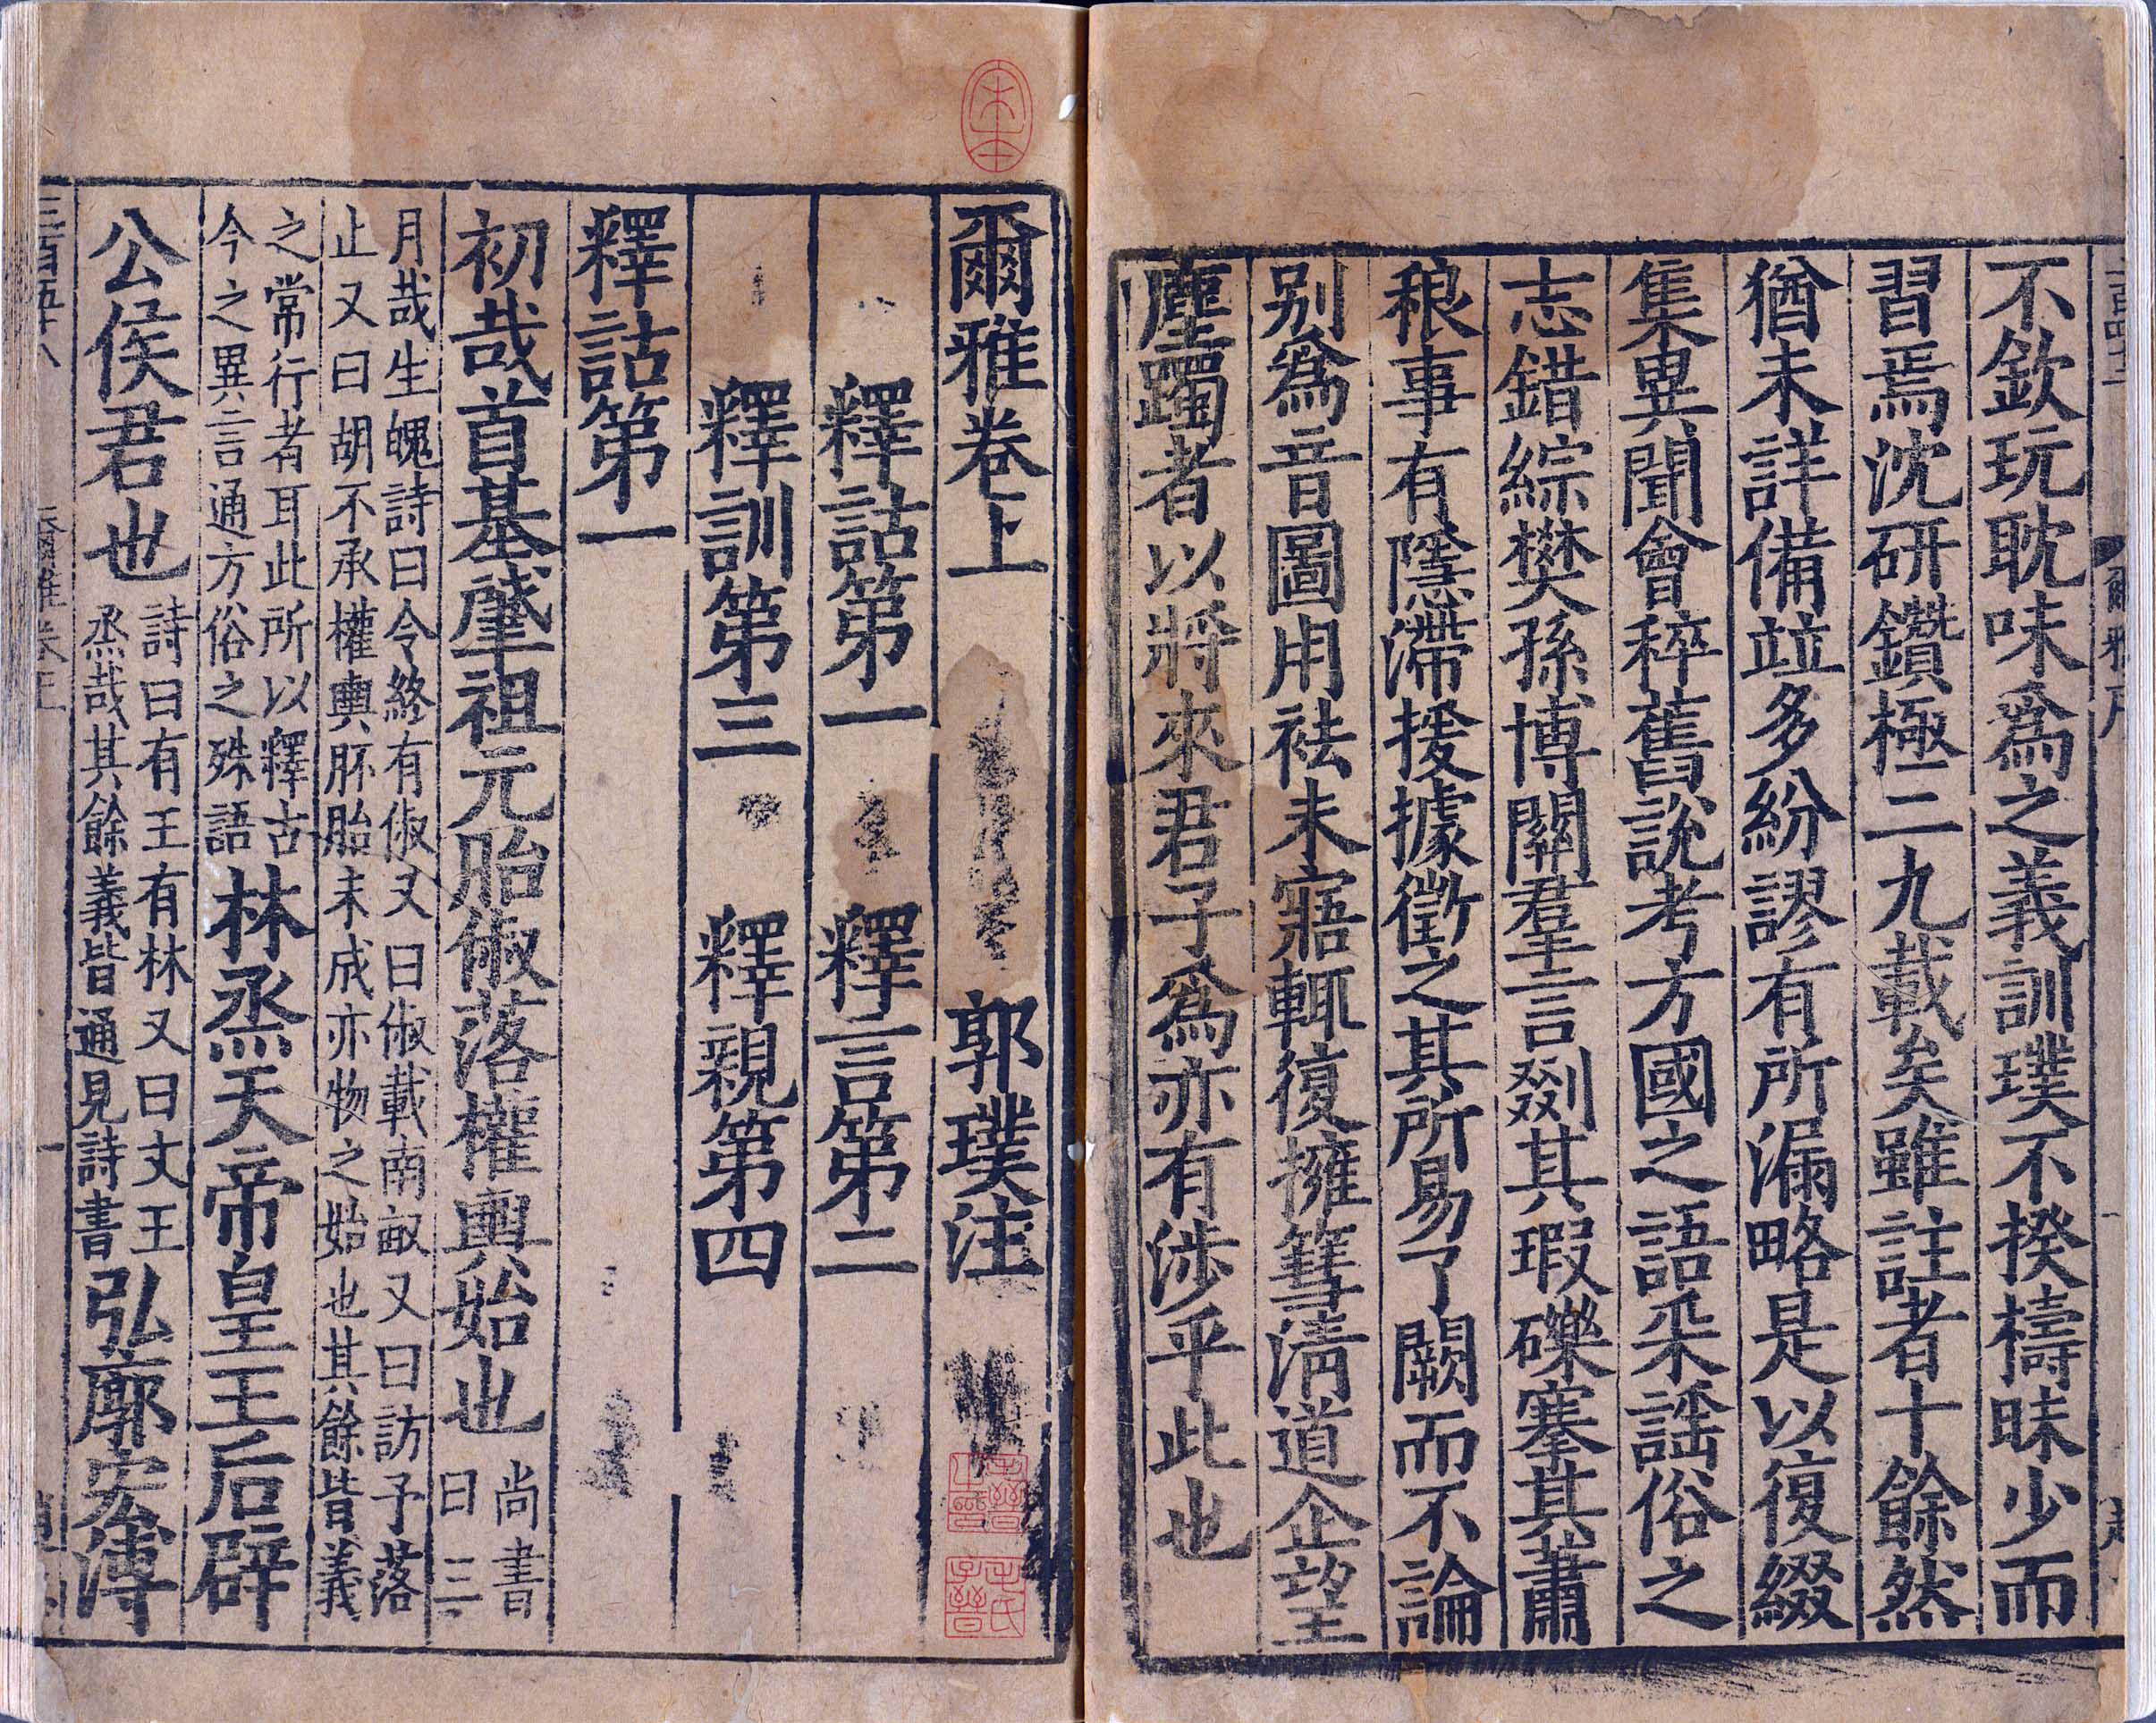 不欽玩耽味爲之義訓璞不揆檮昧少而
習焉沈研鑽極二九載矣雖註者十餘然
猶未詳備竝多紛謬有所漏略是以復綴
集異聞會稡舊說考方國之語采謡俗之
志錯綜樊孫博關羣言剟其瑕礫搴其蕭
稂事有隱滯援據徵之其所易了闕而不論
别爲音圖用袪未寤輒復擁篲淸道企望
塵躅者以將來君子爲亦有涉乎此也
爾雅卷上 郭璞注
釋詁第一 釋言第二
釋訓第三 釋親第四
釋詁第一
初哉首基肇祖元胎俶落權輿始也 尚書
曰三
月哉生魄詩曰令終有俶又曰俶載南畝又曰訪予落
止又曰胡不承權輿胚胎未成亦物之始也其餘皆義
之常行者耳此所以釋古
今之異言通方俗之殊語 林烝天帝皇王后辟
公侯君也 詩曰有王有林又曰文王
烝哉其餘義皆通見詩書 弘廓宏溥
三百五十八 爾雅卷上 一
毛氏
子晉